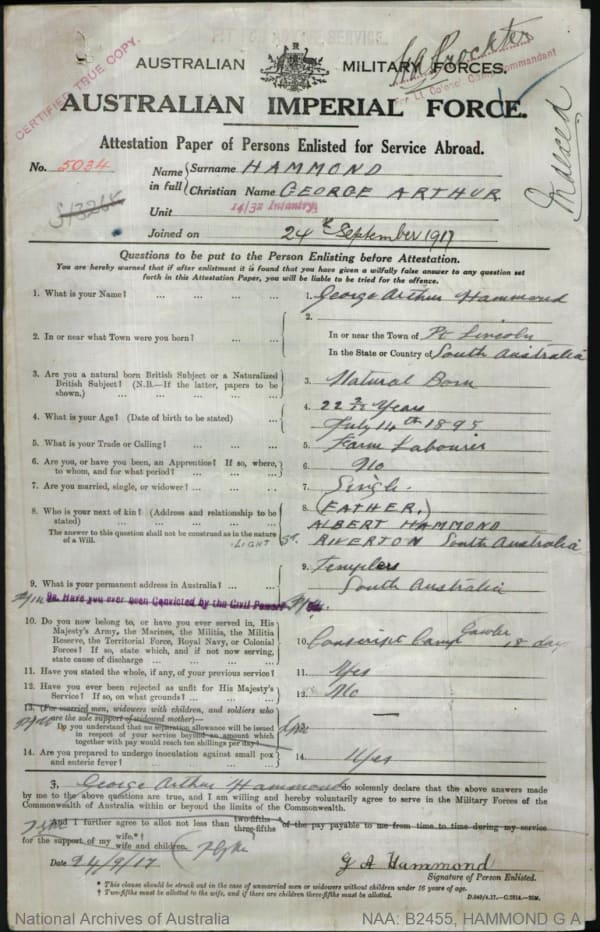 CERTIFIED TRUE COPY.
AUSTRALIAN MILITARY FORCES.
AUSTRALIAN IMPERIAL FORCE.
For Lt. Colonel Camp Commandant
Attestation Paper of Persons Enlisted for Service Abroad.
No. 5034
Name in full { Surname HAMMOND
Christian Name GEORGE ARTHUR
Unit 14/32 Infantry
Joined on 24th September 1917
Questions to be put to the Person Enlisting before Attestation.
You are hereby warned that if after enlistment it is found that you have given a wilfully false answer to any question set
forth in this Attestation Paper, you will be liable to be tried for the offence.
1. What is your Name? ... ... ... 1. George Arthur Hammond
2. In or near what Town were you born? ... 2. In or near the Town of Pt Lincoln
In the State or Country of South Australia
3. Are you a natural born British Subject or a Naturalized
British Subject? (N.B.—If the latter, papers to be
shown.) ... ... ... ... 3. Natural Born
4. What is your Age? (Date of birth to be stated) ... 4. 22 Years
July 14th 1895
5. What is your Trade or Calling? ... ... ... 5. Farm Labourer
6. Are you, or have you been, an Apprentice? If so, where,
to whom, and for what period? ... ... ... 6. No
7. Are you married, single, or widower? ... ... ... 7. Single.
8. Who is your next of kin? (Address and relationship to be
stated) ... ... ... ... 8. (FATHER.)
ALBERT HAMMOND
The answer to this question shall not be construed as in the nature
of a Will. LIGHT St. RIVERTON South Australia
9. What is your permanent address in Australia? ... ... 9. Templers
South Australia
9a. Have you ever been Convicted by the Civil Power?
10. Do you now belong to, or have you ever served in, His
Majesty's Army, the Marines, the Militia, the Militia
Reserve, the Territorial Force, Royal Navy, or Colonial
Forces? If so, state which, and if not now serving,
state cause of discharge ... ... ... 10. Conscript Camp Gawler 18 day
11. Have you stated the whole, if any, of your previous service? 11. Yes
12. Have you ever been rejected as unfit for His Majesty's
Service? If so, on what grounds? ... ... ... 12. No
13. (For married men, widowers with children, and soldiers who
are the sole support of widowed mother)—
Do you understand that no separation allowance will be issued
in respect of your service beyond an amount which
together with pay would reach ten shillings per day? —
14. Are you prepared to undergo inoculation against small pox
and enteric fever? ... ... ... ... 14. Yes
I, George Arthur Hammond do solemnly declare that the above answers made
by me to the above questions are true, and I am willing and hereby voluntarily agree to serve in the Military Forces of the
Commonwealth of Australia within or beyond the limits of the Commonwealth.
And I further agree to allot not less than two-fifths three-fifths of the pay payable to me from time to time during my service
for the support of my wife.*† wife and children.
Date 24/9/17 G A Hammond
Signature of Person Enlisted.
* This clause should be struck out in the case of unmarried men or widowers without children under 16 years of age.
† Two-fifths must be allotted to the wife, and if there are children three-fifths must be allotted.
National Archives of Australia NAA: B2455, HAMMOND G A